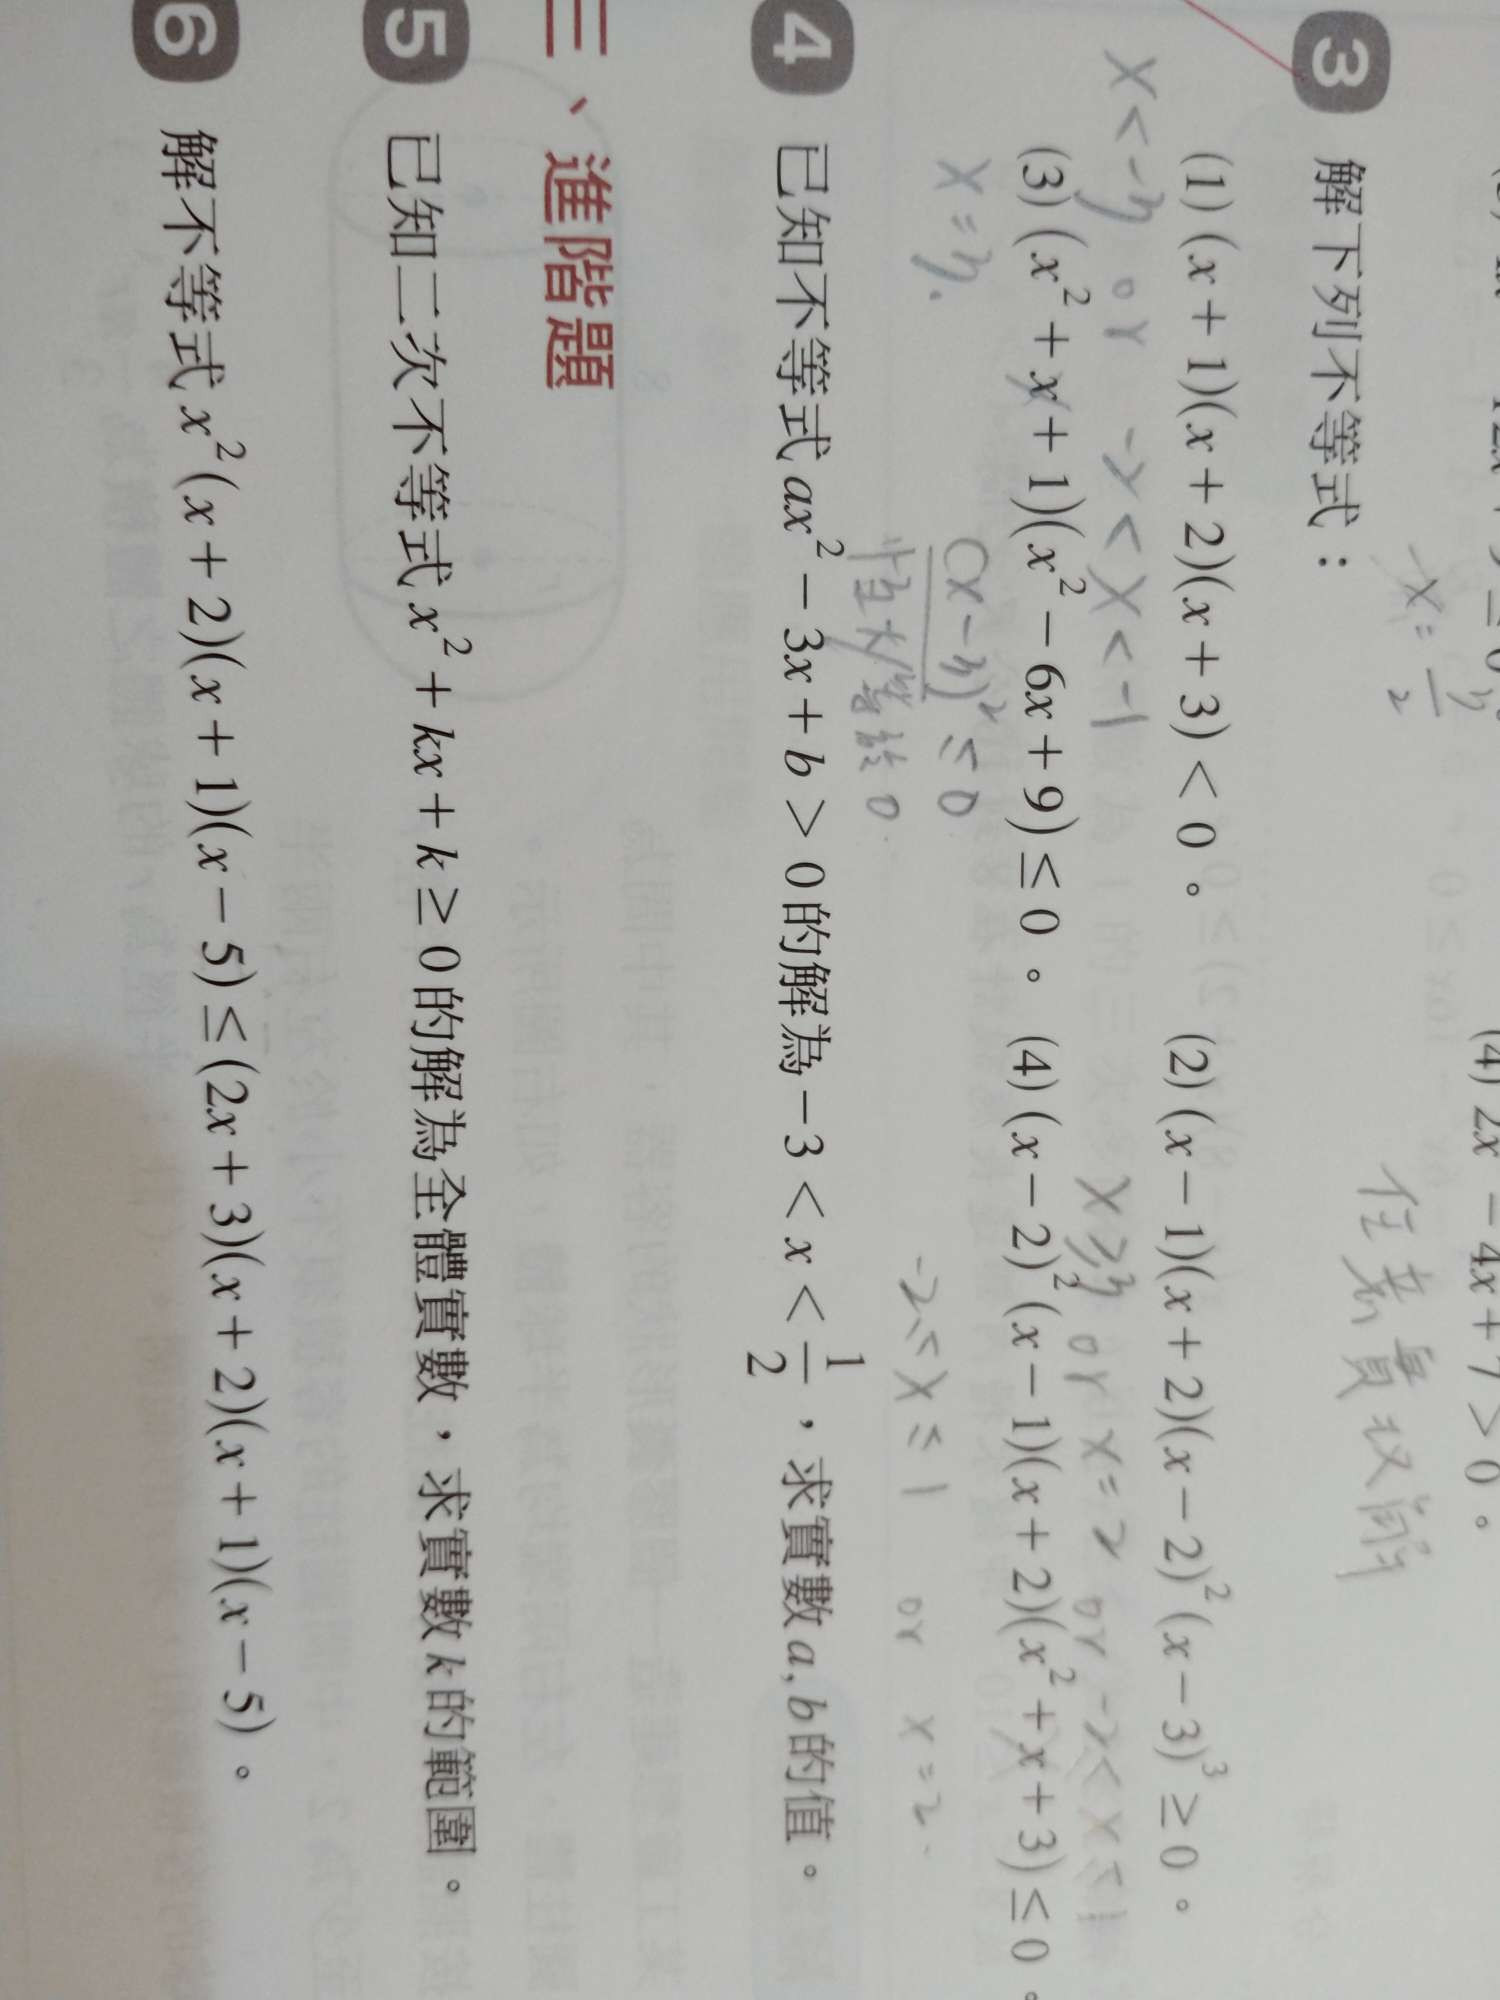 (4) 2x − 4x + 7 > 0。
x = 3/2
任意實數解
3 解下列不等式：
(1) (x + 1)(x + 2)(x + 3) < 0。 (2) (x − 1)(x + 2)(x − 2)² (x − 3)³ ≥ 0。
x < −3 or −2 < x < −1
x ≥ 3 or x = 2 or −2 < x ≤ 1
(3) (x² + x + 1)(x² − 6x + 9) ≤ 0。 (4) (x − 2)² (x − 1)(x + 2)(x² + x + 3) ≤ 0。
x = 3.
(x − 3)² ≤ 0
恒大等於0
−2 ≤ x ≤ 1 or x = 2.
4 已知不等式 ax² − 3x + b > 0 的解為 −3 < x < 1/2，求實數 a, b 的值。
三、進階題
5 已知二次不等式 x² + kx + k ≥ 0 的解為全體實數，求實數 k 的範圍。
6 解不等式 x² (x + 2)(x + 1)(x − 5) ≤ (2x + 3)(x + 2)(x + 1)(x − 5)。